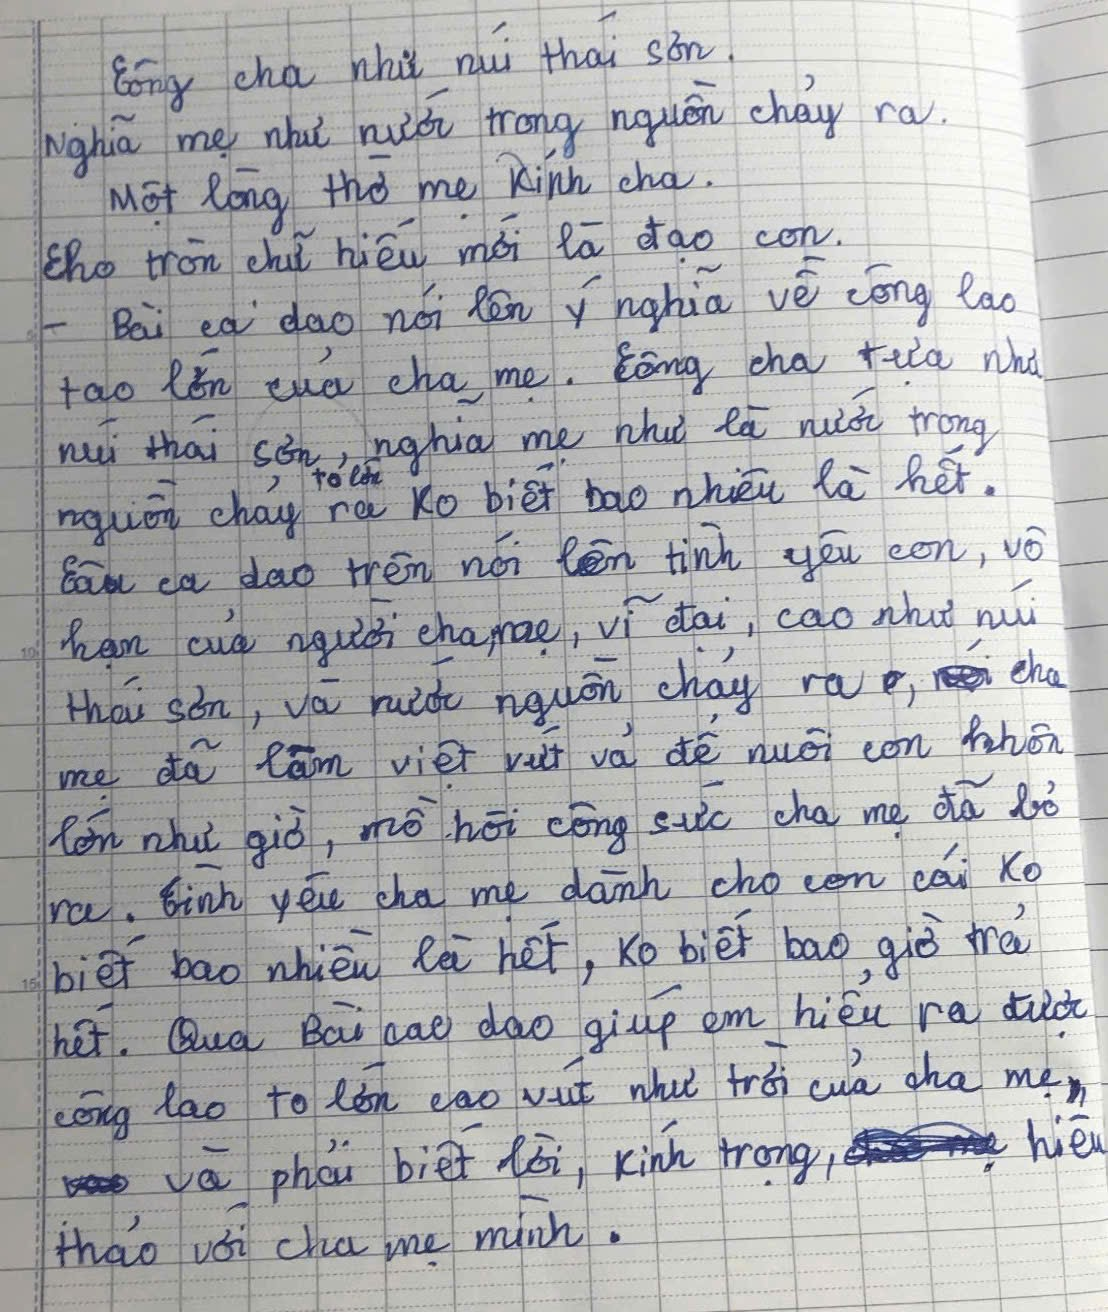 Công cha như núi thái sơn.
Nghĩa mẹ như nước trong nguồn chảy ra.
Một lòng thờ mẹ kính cha.
Cho tròn chữ hiếu mới là đạo con.
- Bài ca dao nói lên ý nghĩa về công lao
tao lớn của cha mẹ. Công cha tựa như
núi thái sơn, nghĩa mẹ như là nước trong
nguồn chảy ra to lớn ko biết bao nhiêu là hết.
Câu ca dao trên nói lên tình yêu con, vô
hạn của người cha, mẹ, vĩ đại, cao như núi
thái sơn, và nước nguồn chảy ra, cha
mẹ đã làm việt vất vả để nuôi con khôn
lớn như giờ, mồ hôi công sức cha mẹ đã bỏ
ra. Tình yêu cha mẹ dành cho con cái ko
biết bao nhiêu là hết, ko biết bao giờ trả
hết. Qua Bài cao dao giúp em hiểu ra được
công lao to lớn cao vút như trời của cha mẹ,
và phải biết lời, kính trọng, hiếu
thảo với cha mẹ mình.